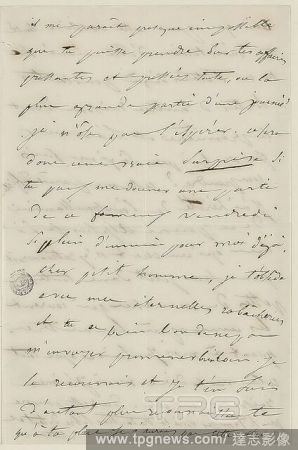 il me paraît presque impossible
que tu puisses prendre sur tes affaires
pressantes et pressées toute, ou la
plus grande partie d'une journée
je n'ose pas l'espérer. ce sera
donc une vraie surprise si
tu peux me donner une partie
de ce fameux vendredi
si plein d'ennui pour moi déjà.
Cher petit homme, je t'obsède
avec mes éternelles rabâcheries
et tu es bien bon de ne pas
m'envoyer promener. Je
le reconnais et je t'en suis
d'autant plus reconnaissante
qu'à ta place je
TPG
www.tpgnews.com 達志影像